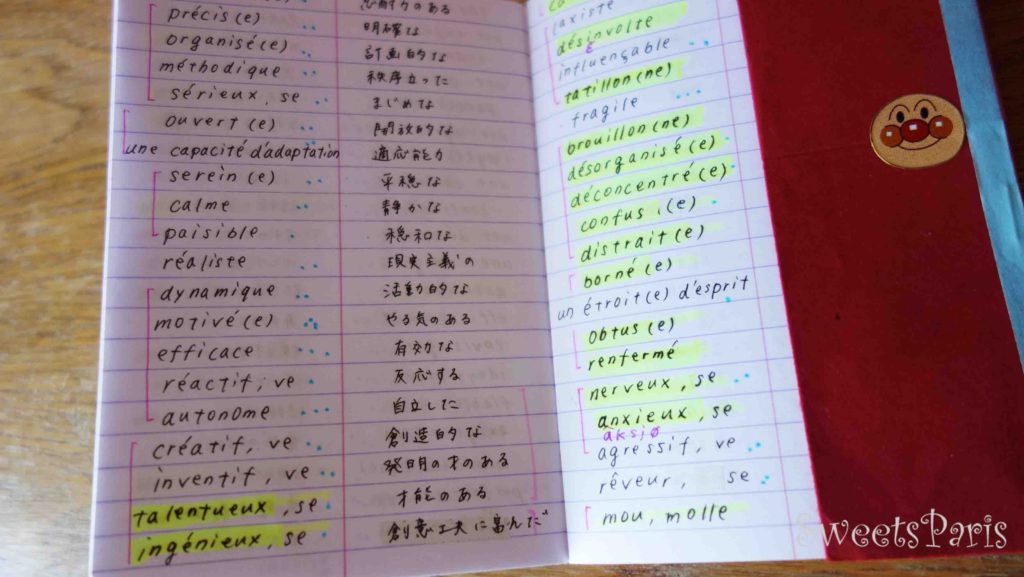 précis(e) .. 明確な
organisé(e) .. 計画的な
méthodique .. 秩序立った
sérieux, se .. まじめな
ouvert(e) .. 開放的な
une capacité d'adaptation 適応能力
serein(e) .. 平穏な
calme .. 静かな
paisible .. 穏和な
réaliste .. 現実主義の
dynamique .. 活動的な
motivé(e) やる気のある
efficace .. 有効な
réactif, ve . 反応する
autonome ... 自立した
créatif, ve .. 創造的な
inventif, ve .. 発明の才のある
talentueux, se . 才能のある
ingénieux, se . 創意工夫に富んだ
laxiste
désinvolte
influençable ..
tatillon(ne)
fragile ...
brouillon(ne)
désorganisé(e)
déconcentré(e).
confus.(e)
distrait(e)
borné(e)
un étroit(e) d'esprit
obtus(e)
renfermé
nerveux, se ..
anxieux, se
aksjø
agressif, ve .
rêveur, se .
mou, molle
SweetsParis